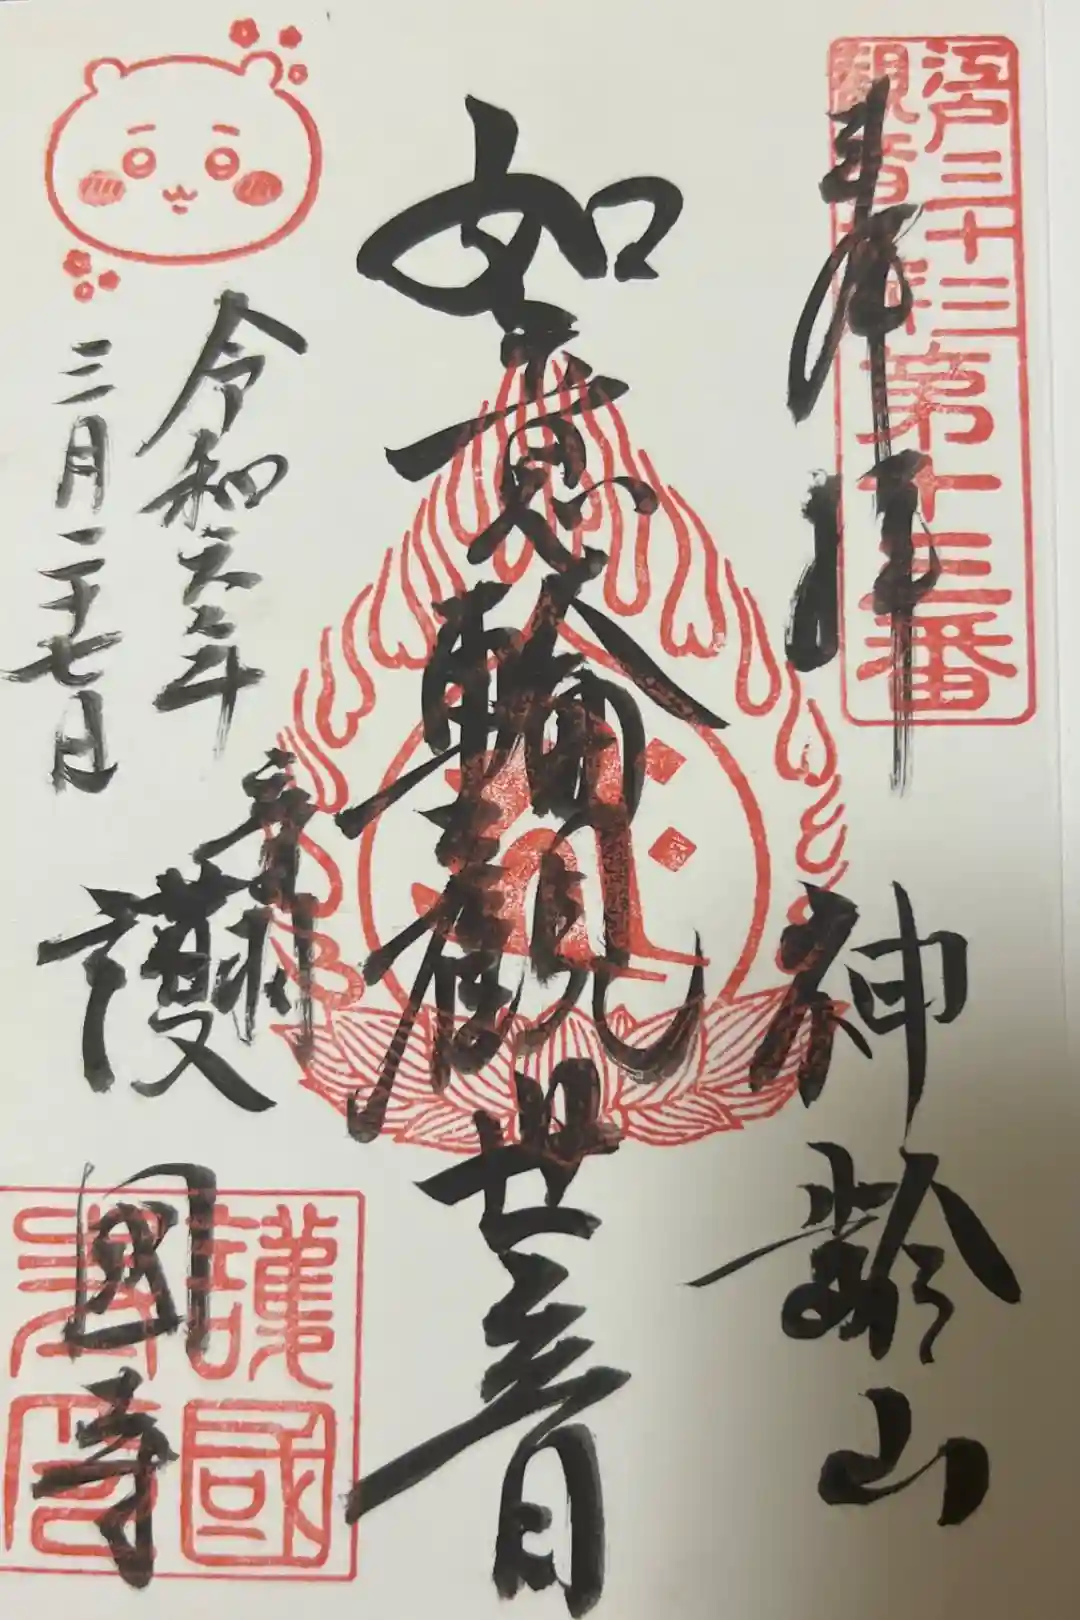 奉拝
江戸三十三
観音札所
第十三番
神齢山
如意輪観世音
令和六年
三月二十七日
護國寺
護國
寺印